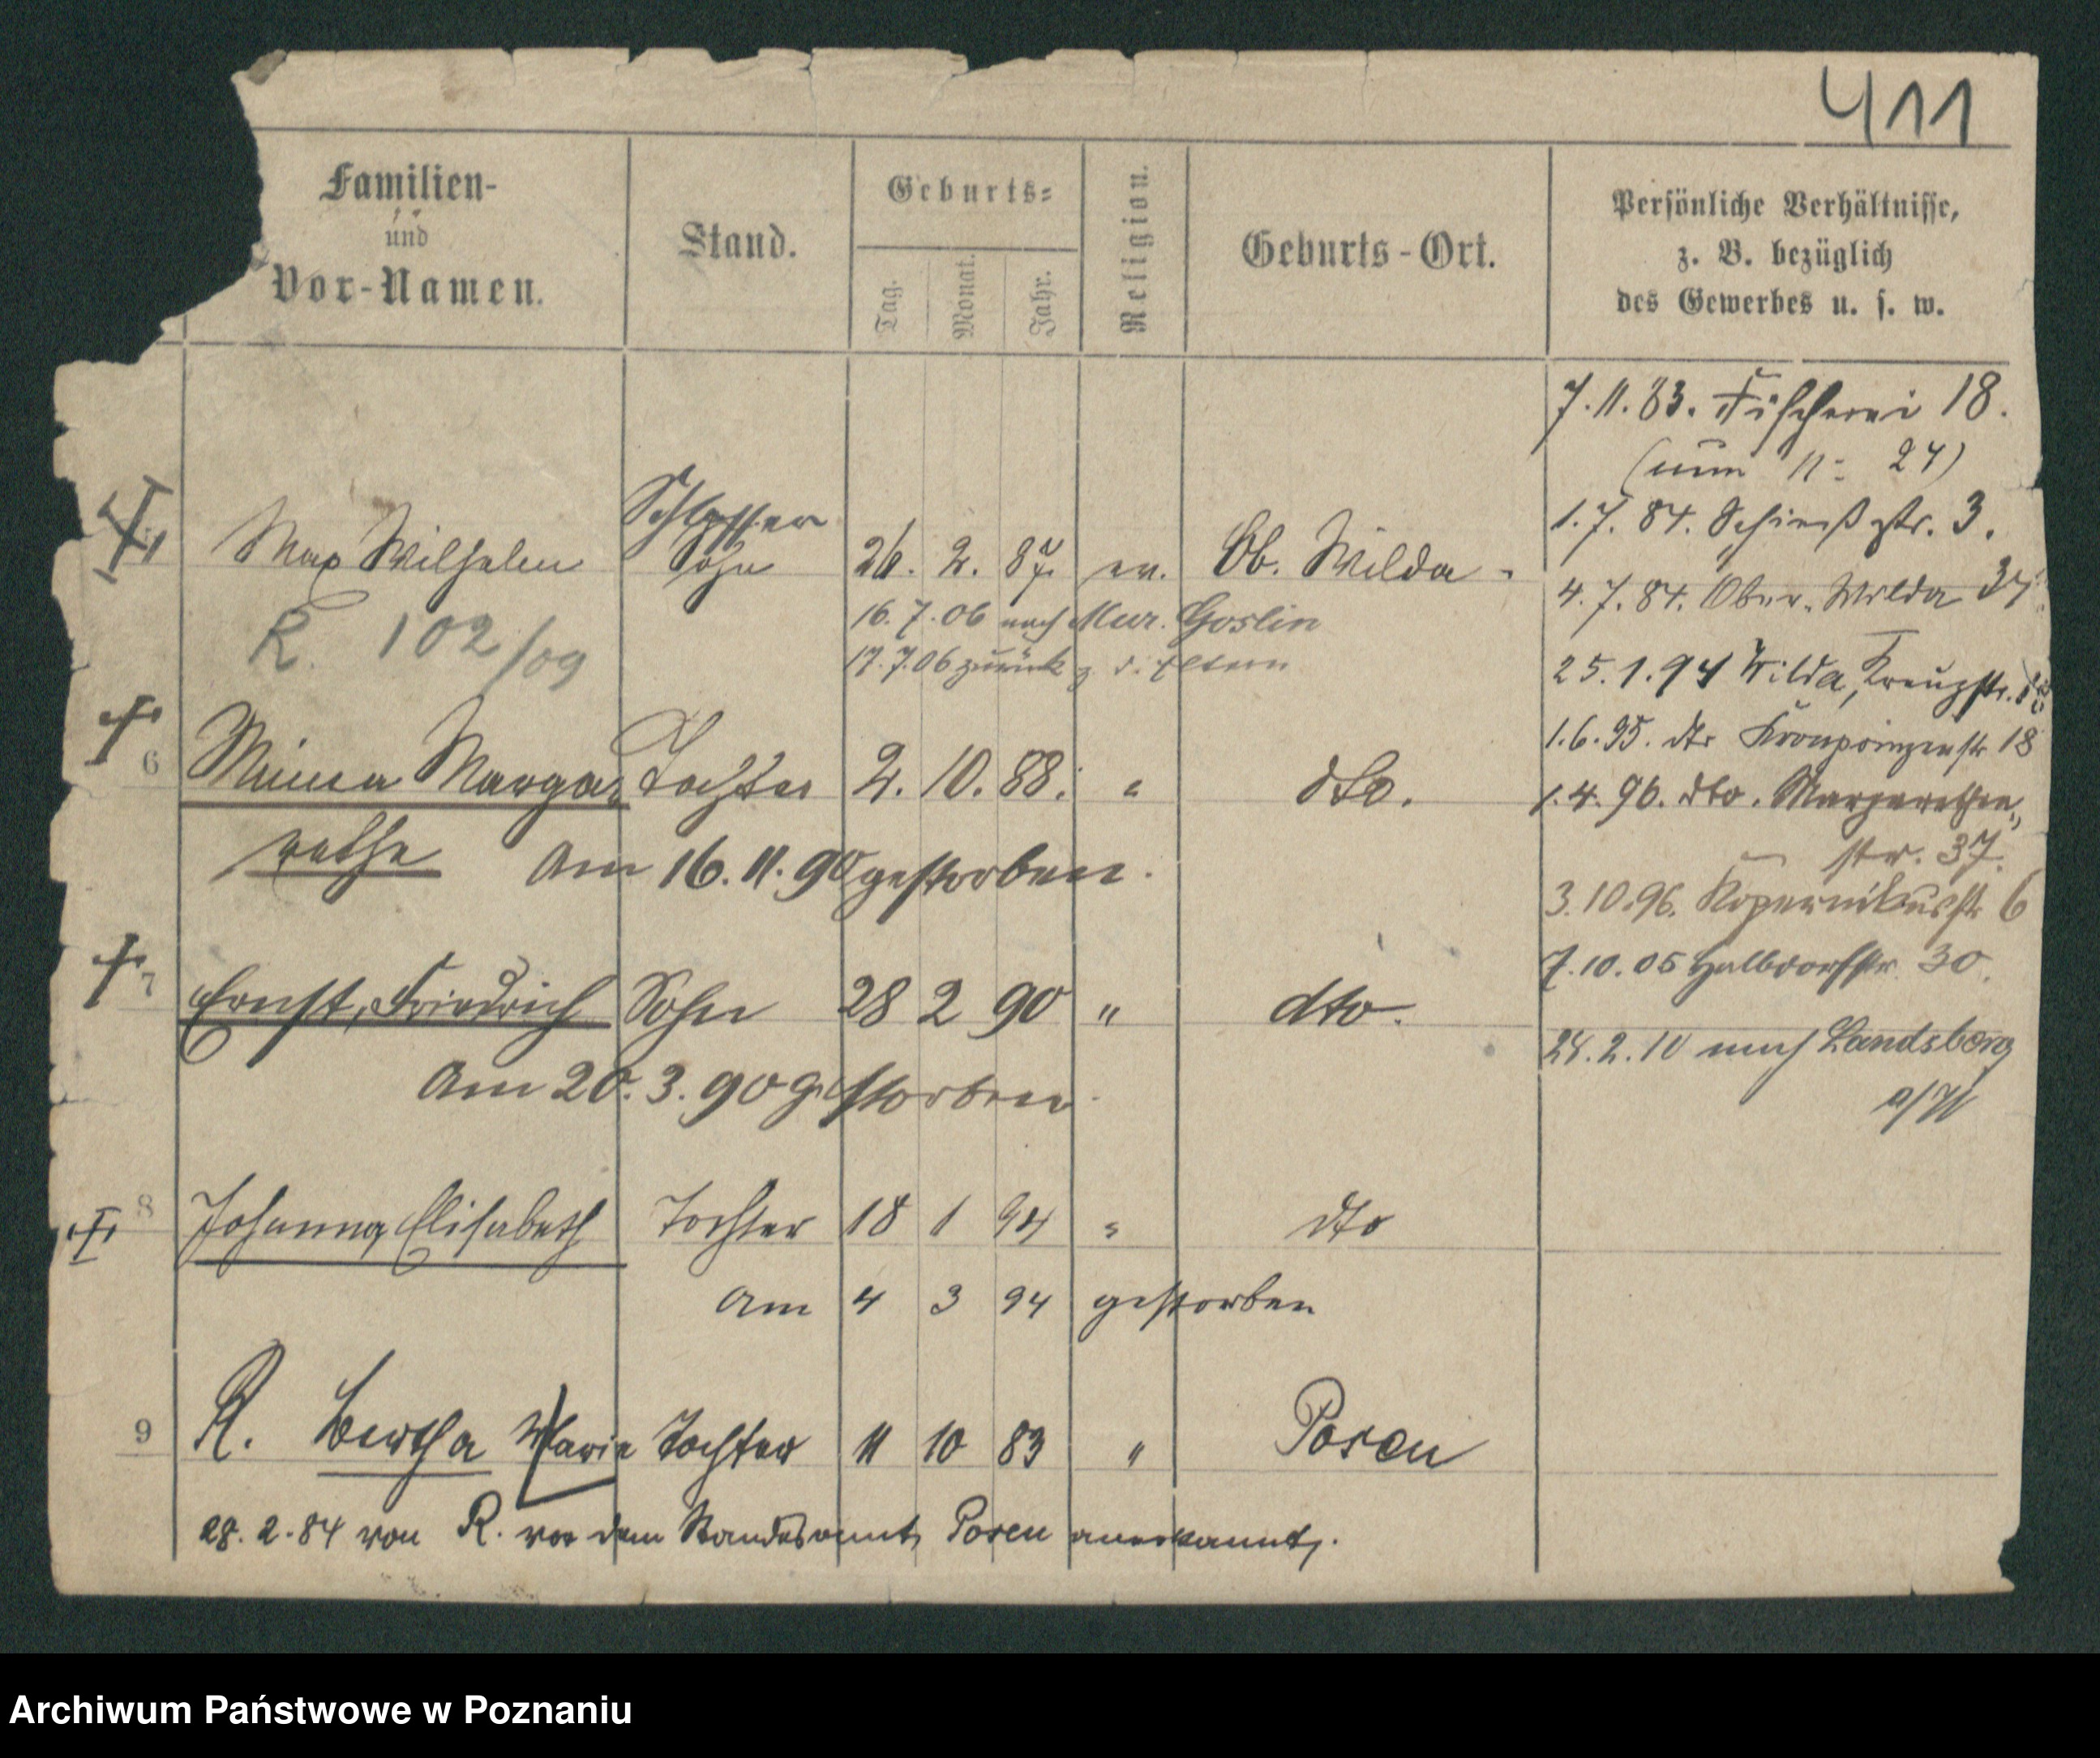 411
Familien-
und
Vor-Namen.
Stand.
Geburts-
Tag.
Monat.
Jahr.
Religion.
Geburts-Ort.
Persönliche Verhältnisse,
z. B. bezüglich
des Gewerbes u. s. w.
7.11.83. Fischerei 18.
(nun N: 24)
1.7.84. Schießstr. 3.
4.7.84. Ober-Wilda 37
25.1.94 Wilda, Kreuzstr.
1.6.95. dto Kronprinzenstr 18
1.4.96. dto. Margarethen-
str. 37.
3.10.96. Kopernikusstr 6
7.10.05 Halbdorfstr. 30.
24.2.10 nach Landsberg
a/W
Schlosser
Max Wilhelm Sohn 26. 2. 87. ev. Ob. Wilda
16.7.06 nach Mur. Goslin
17.7.06 zurück z. d. Eltern
R. 102/09
6 Minna Marga- Tochter 2. 10. 88. " dto.
rethe Am 16.11.90 gestorben.
7 Ernst, Friedrich Sohn 28 2 90 " dto.
Am 20.3.90 gestorben.
8 Johanna Elisabeth Tochter 18 1 94 " dto
Am 4 3 94 gestorben
9 R. Bertha Marie Tochter 11 10 83 " Posen
28.2.84 von R. vor dem Standesamt Posen anerkannt.
Archiwum Państwowe w Poznaniu